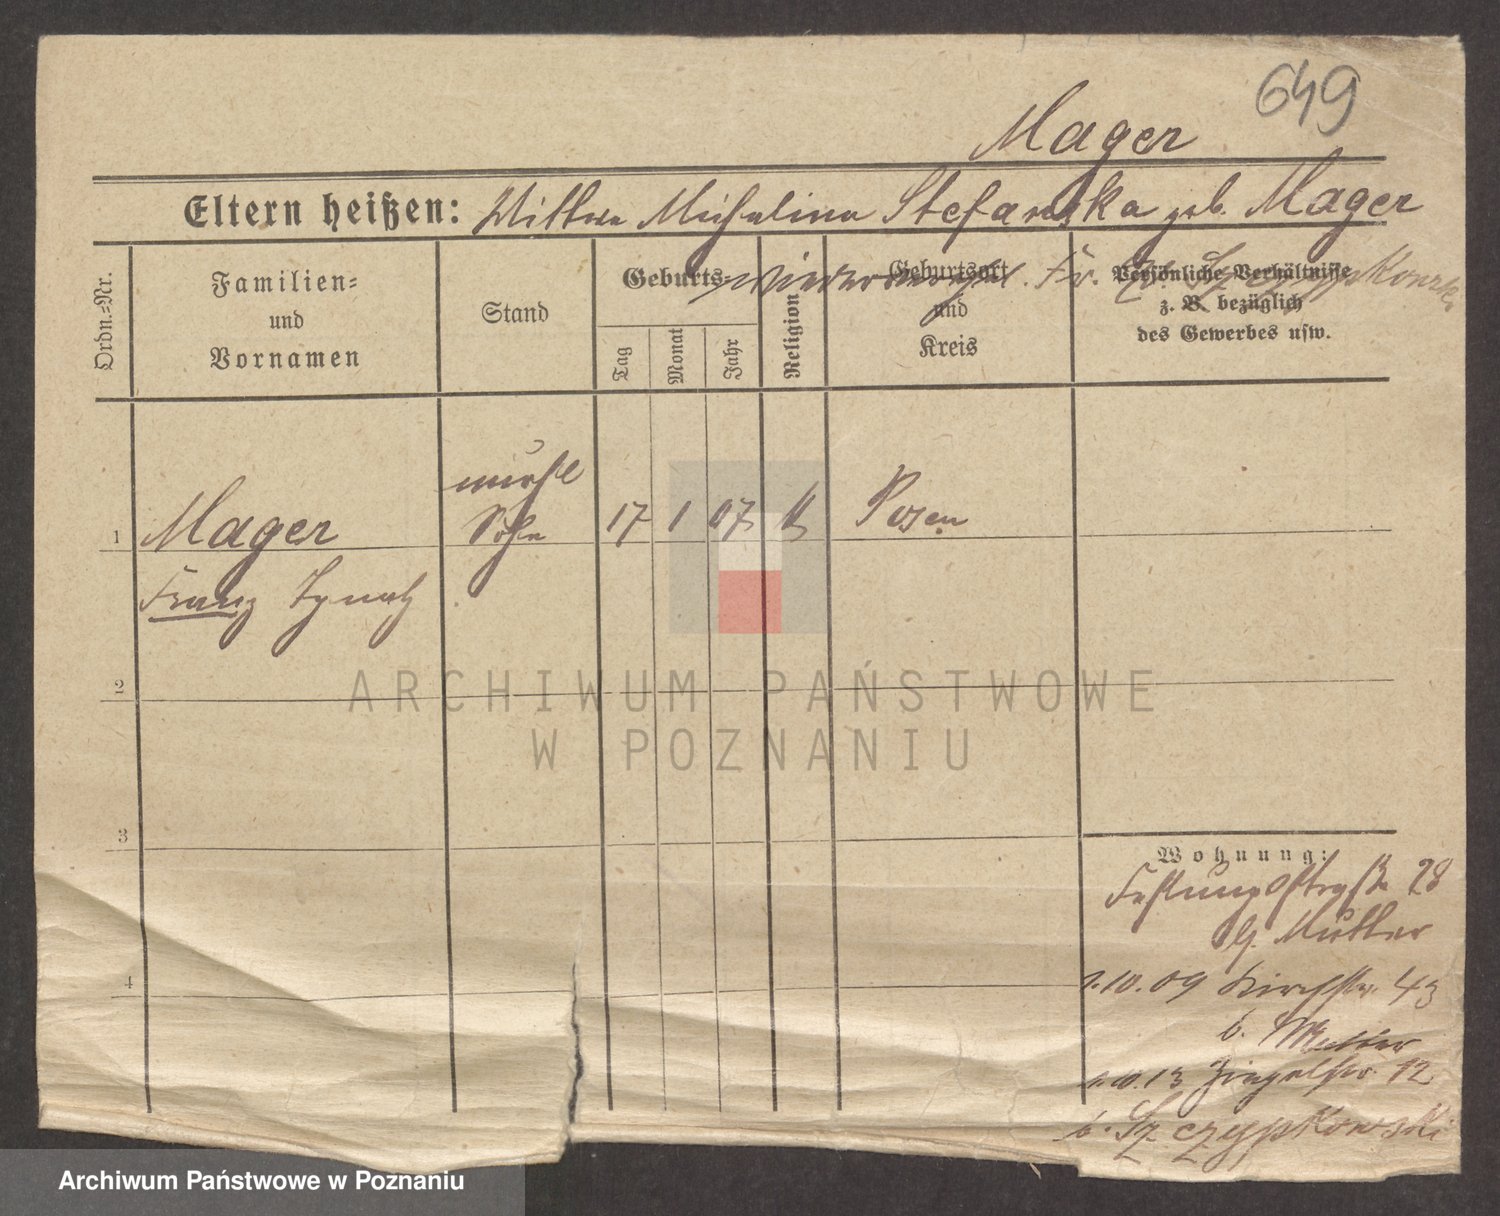 649
Mager
Eltern heißen: Wittwe Michalina Stefanska geb. Mager
Fr. Szczypkowski
Ordn.-Nr.
Familien-
und
Vornamen
Stand
Geburts-
Tag
Monat
Jahr
Religion
Geburtsort
und
Kreis
Persönliche Verhältnisse
z. B. bezüglich
des Gewerbes usw.
1
Mager
unehl
Sohn
17
1
07
k
Posen
Franz Ignatz
2
ARCHIWUM PAŃSTWOWE
W POZNANIU
3
Wohnung:
Festungsstraße 28
b. Mutter
4
1.10.09 Kirchstr. 43
b. Mutter
1.10.13 Ziegelstr. 12
b. Szczypkowski
Archiwum Państwowe w Poznaniu